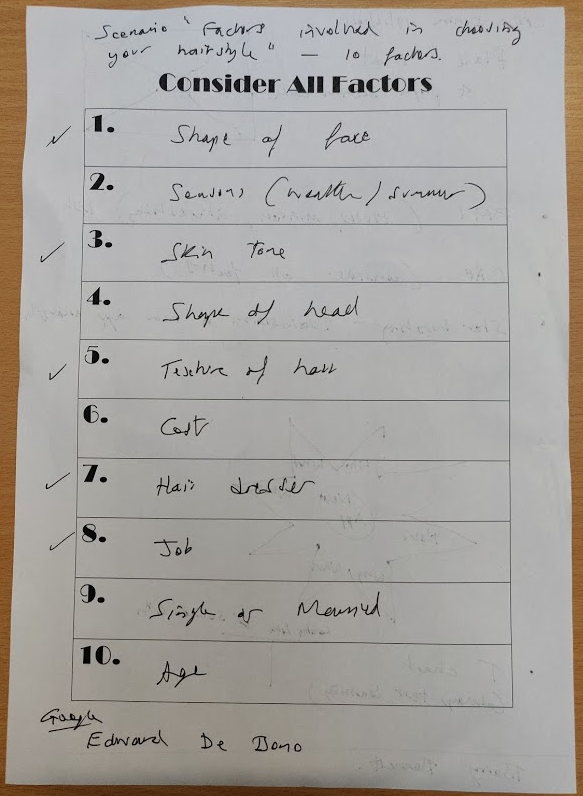 Scenario " Factors involved in choosing
your hairstyle" – 10 factors.
Consider All Factors
1. Shape of face
2. Seasons (weather / summer)
3. Skin tone
4. Shape of head
5. Texture of hair
6. Cost
7. Hair dresser
8. Job
9. Single or Married
10. Age
Google
Edward De Bono